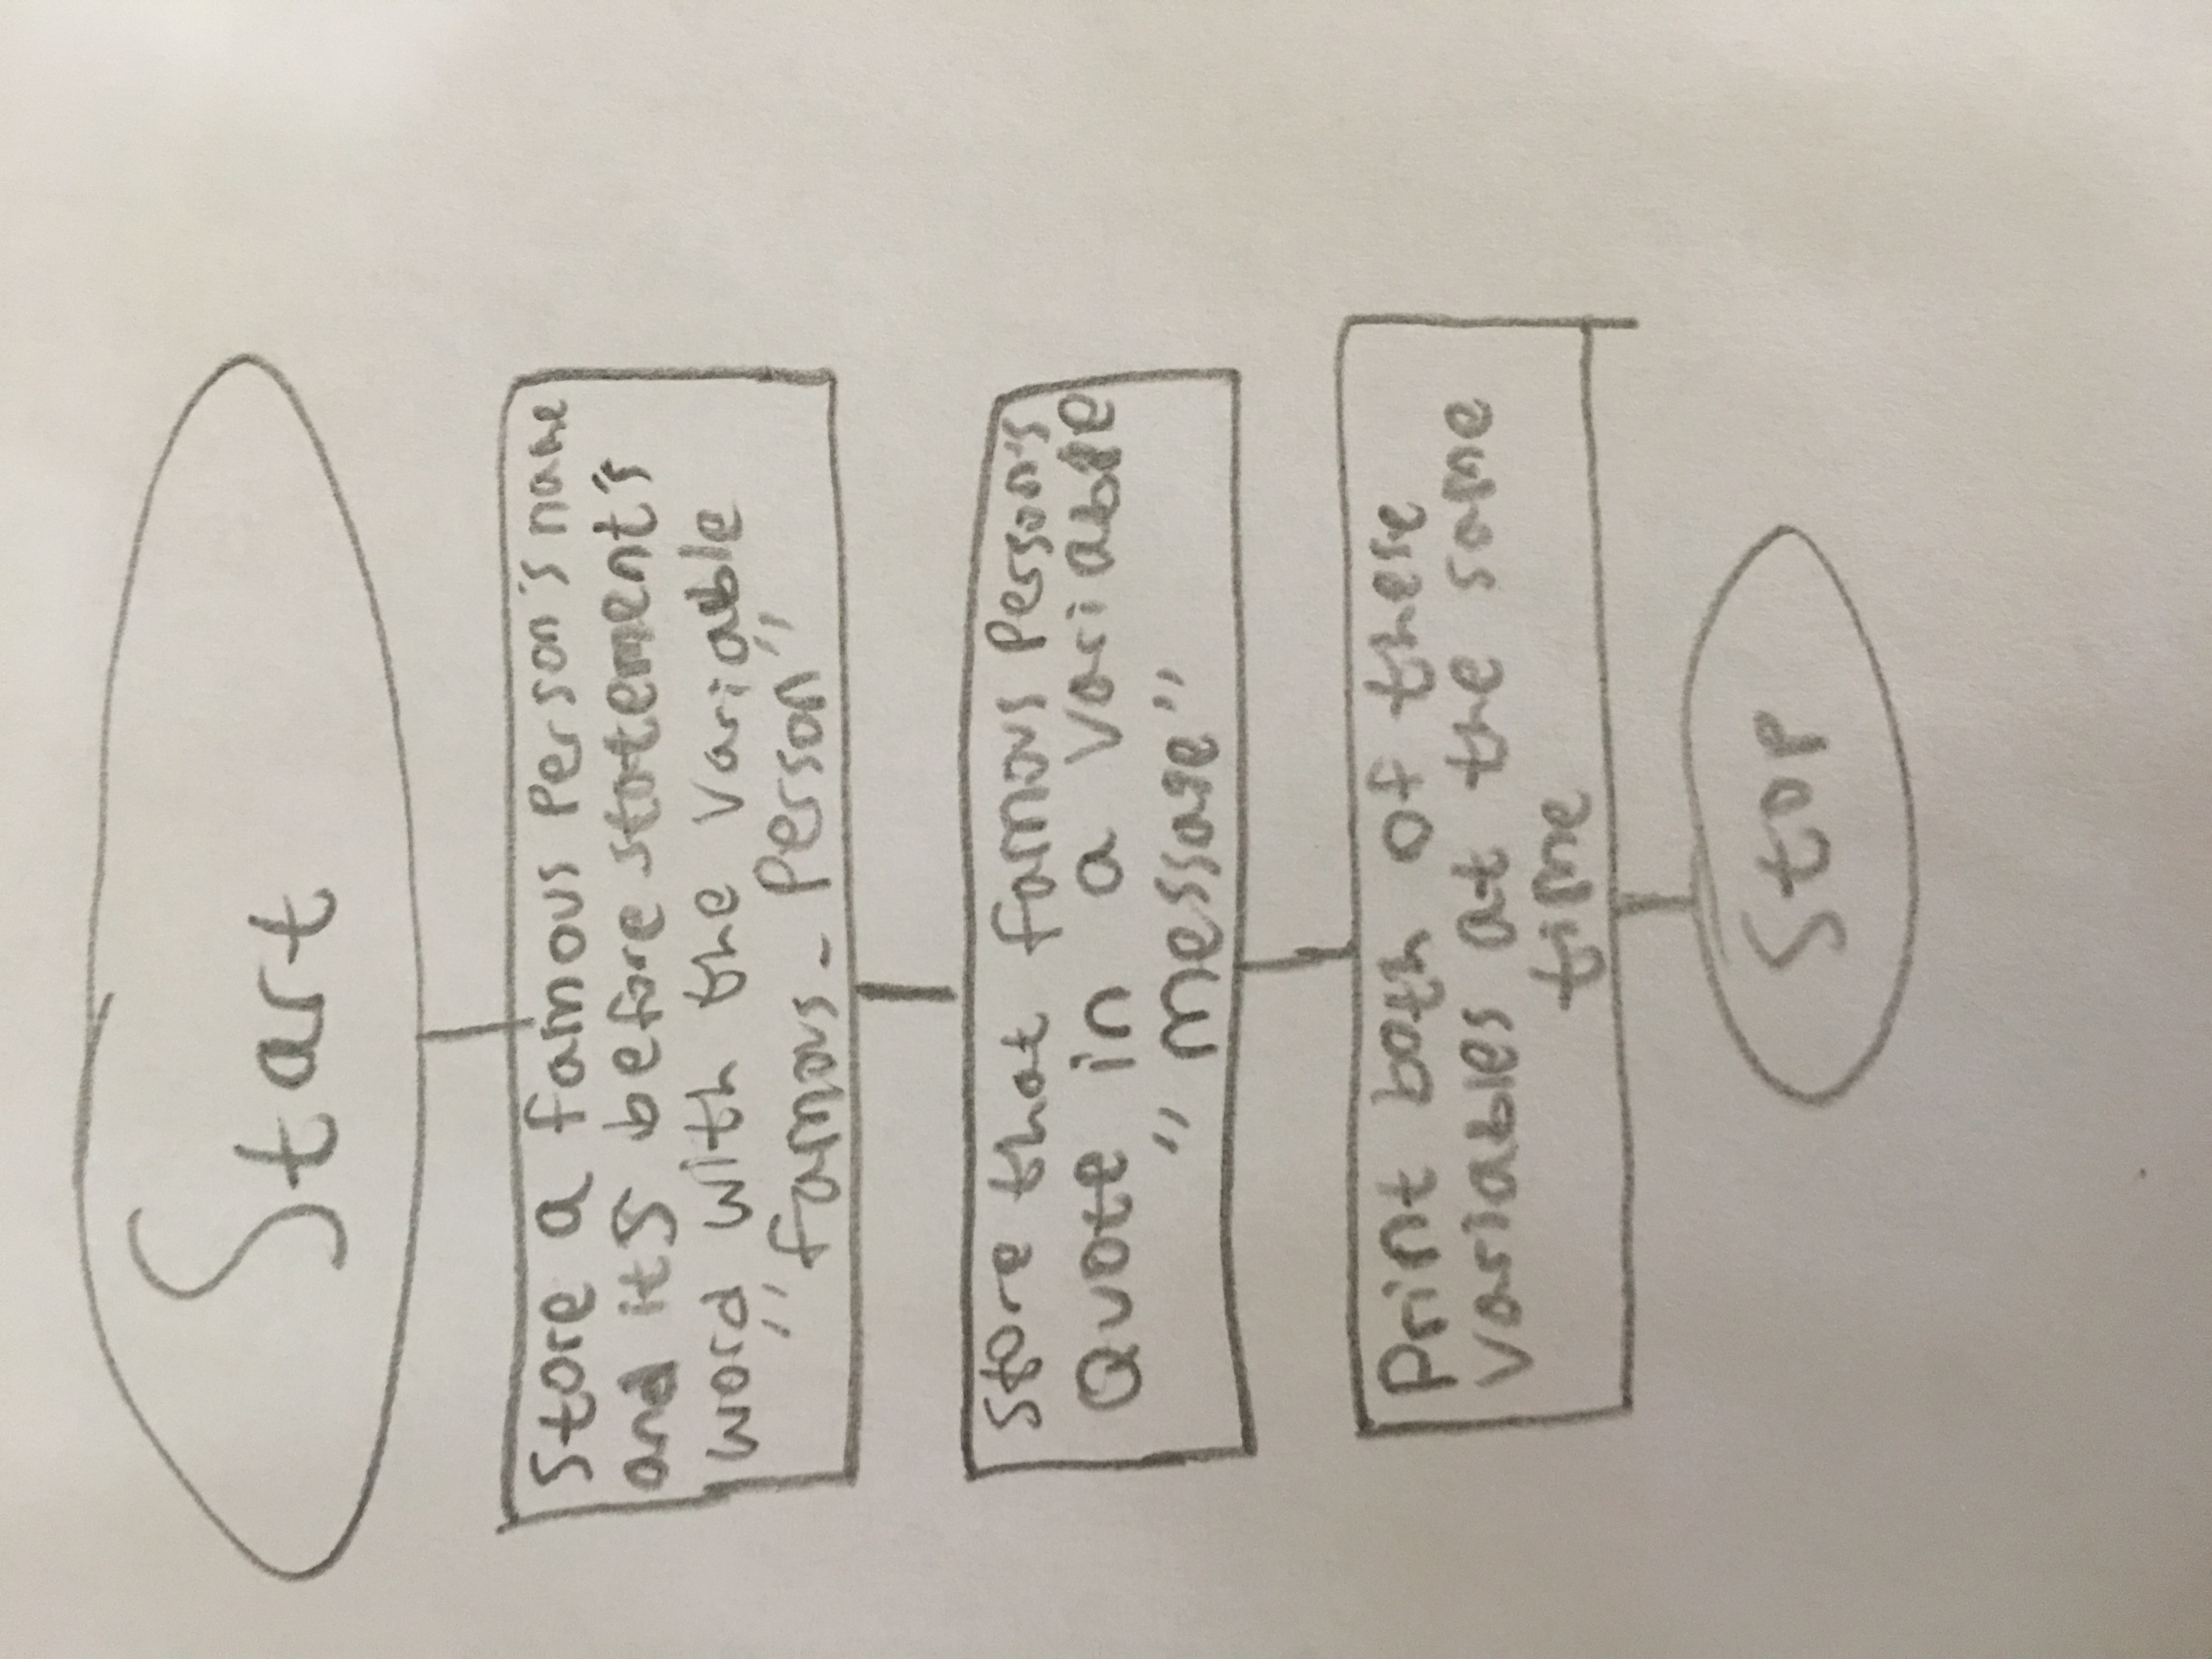 Start
Store a famous Person's name
and its before statement's
word with the variable
"famous_Person"
Store that famous Person's
Quote in a variable
"message"
Print both of these
variables at the same
time
Stop